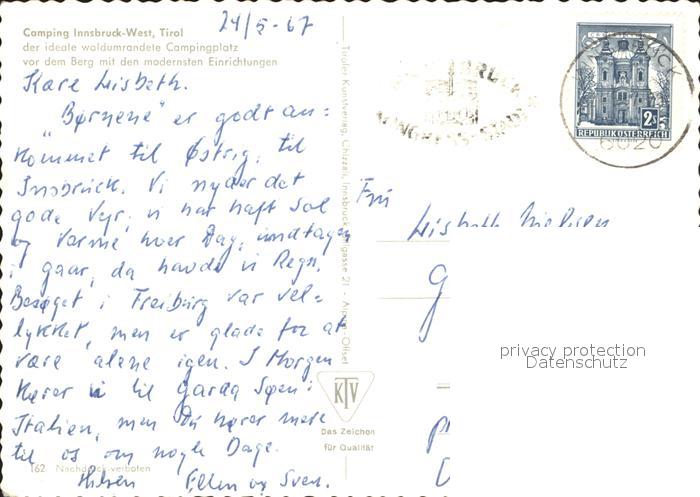 Camping Innsbruck-West, Tirol
der ideale waldumrandete Campingplatz
vor dem Berg mit den modernsten Einrichtungen
24/5-67
Kære Lisbeth.
"Børnene" er godt an=
kommet til Østrig, til
Innsbruck. Vi nyder det
gode Vejr, vi har haft Sol
og Varme hver Dag, undtagen
i gaar, da havde vi Regn.
Besøget i Freiburg var vel=
lykket, men er glade for at
være alene igen. I Morgen
kører vi til Garda Søen i
Italien, men Du hører mere
til os om nogle Dage.
Hilsen Ellen og Sven.
162 Nachdruck verboten
Tiroler Kunstverlag Chizzali, Innsbruck
gasse 21 - Alpina Offset
KTV
Das Zeichen
für Qualität
INNSBRUCK
6020
2S
REPUBLIK ÖSTERREICH
Fru
Lisbeth Nielsen
G
privacy protection
Datenschutz